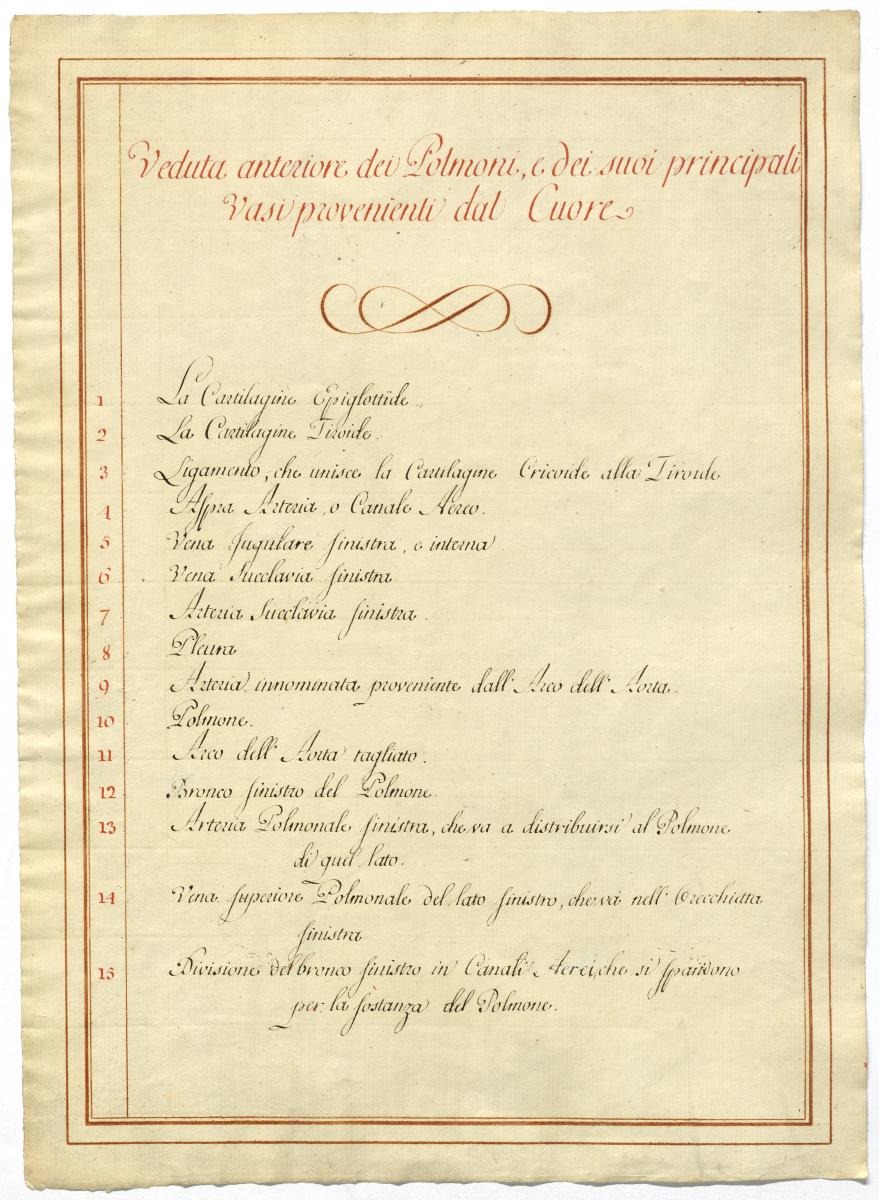 Veduta anteriore dei Polmoni, e dei suoi principali
Vasi provenienti dal Cuore
1 La Cartilagine Epiglottide.
2 La Cartilagine Tiroide.
3 Ligamento, che unisce la Cartilagine Cricoide alla Tiroide
4 Aspra Arteria, o Canale Aereo.
5 Vena Jugulare sinistra, e interna
6 Vena Succlavia sinistra
7 Arteria Succlavia sinistra.
8 Pleura
9 Arteria innominata proveniente dall' Arco dell' Aorta.
10 Polmone.
11 Arco dell' Aorta tagliato.
12 Bronco sinistro del Polmone.
13 Arteria Polmonale sinistra, che va a distribuirsi al Polmone
di quel lato.
14 Vena superiore Polmonale del lato sinistro, che va nell' Orecchietta
sinistra
15 Divisione del bronco sinistro in Canali Aerei, che si spandono
per la sostanza del Polmone.